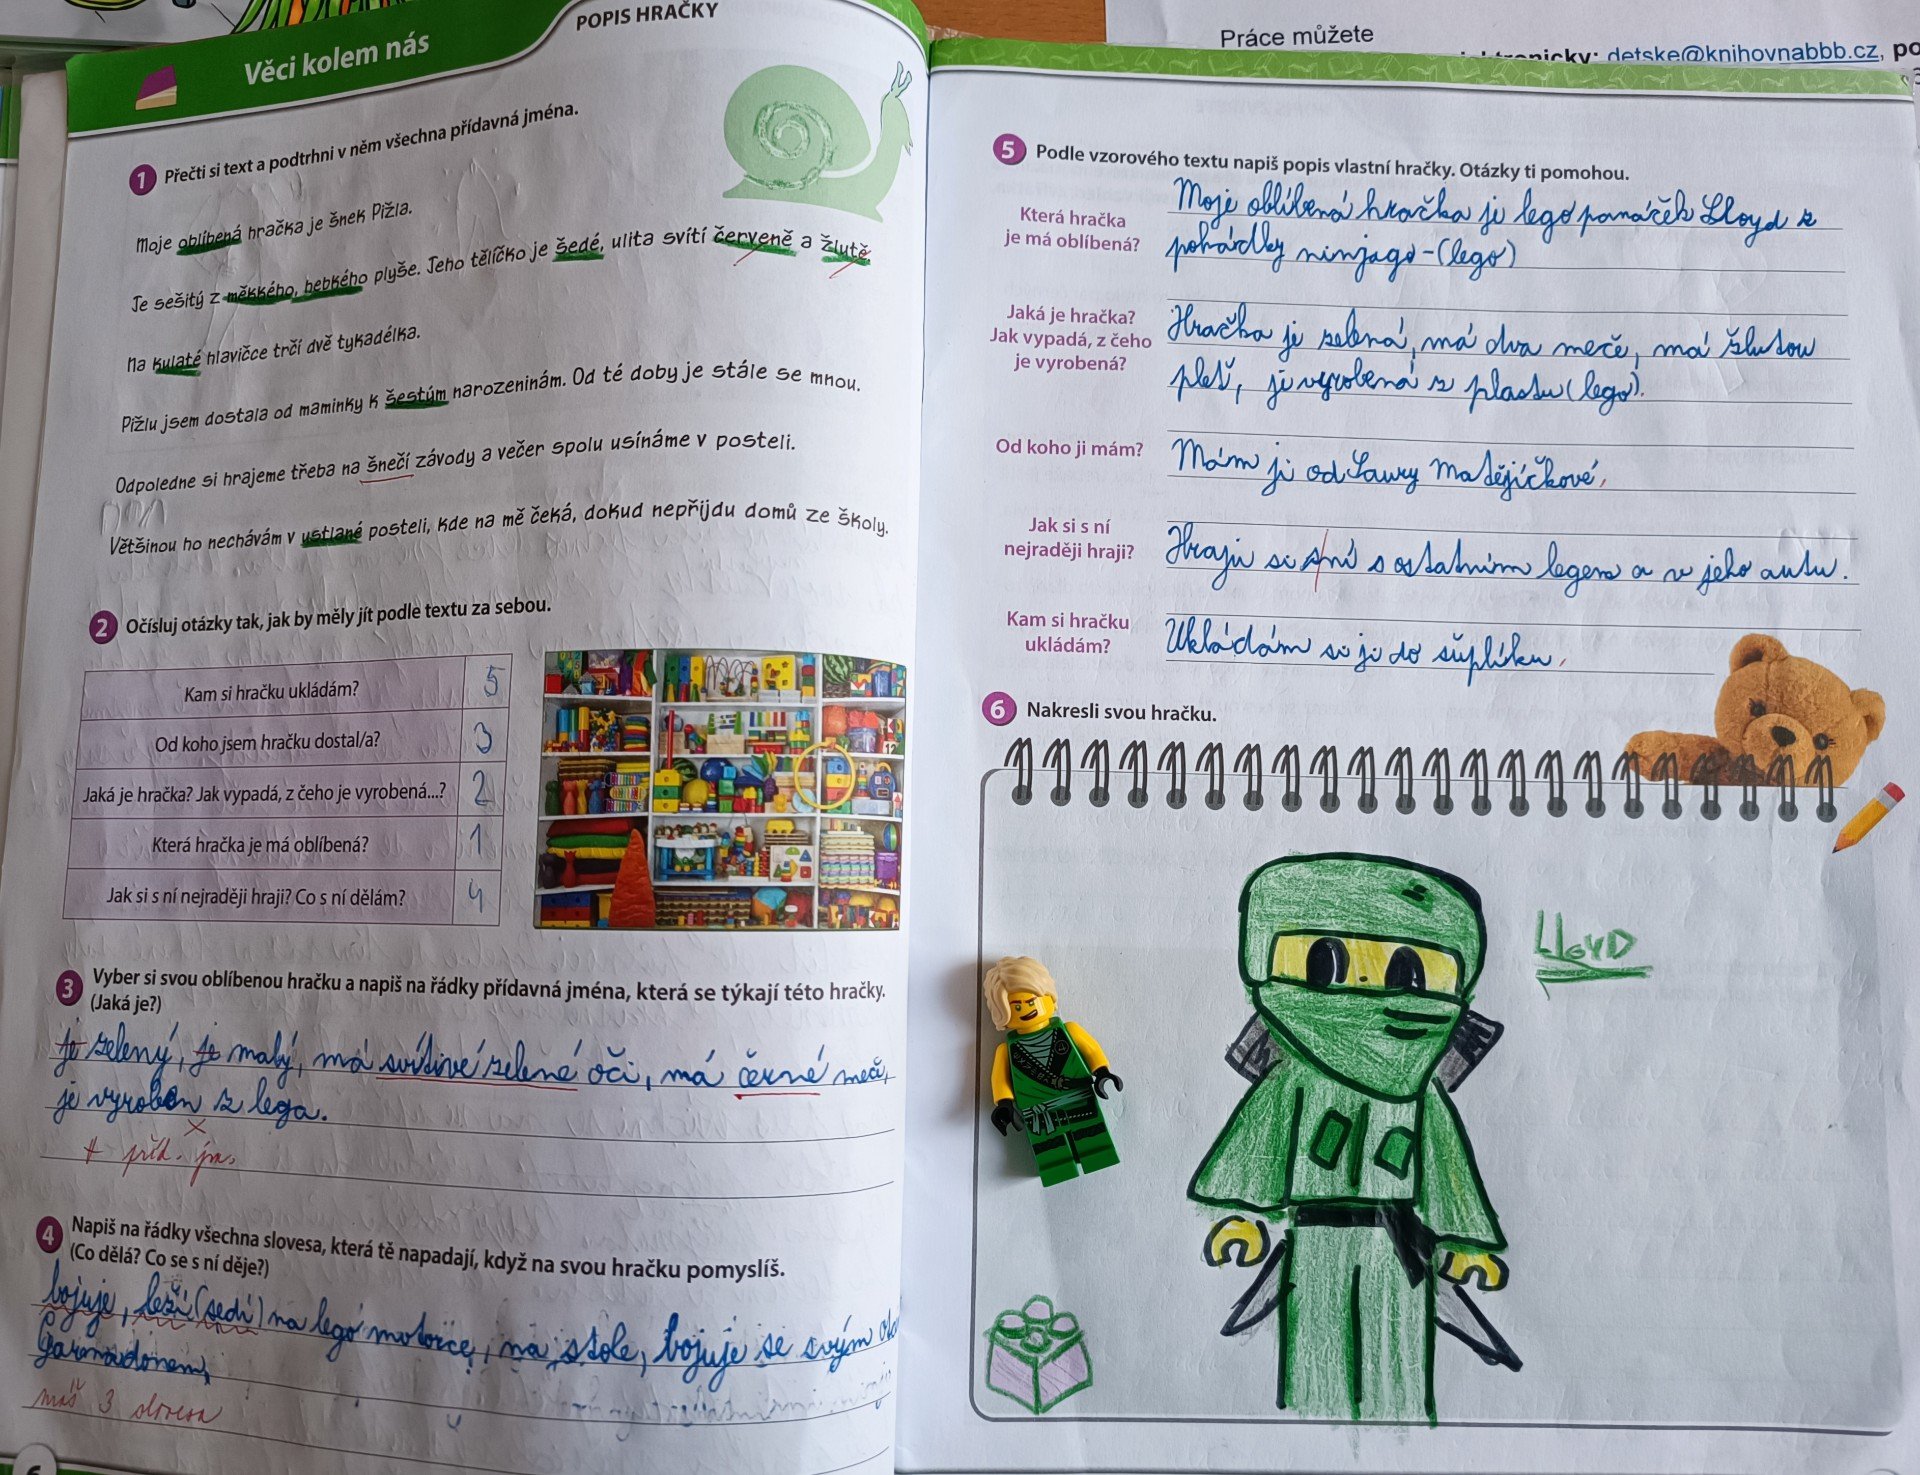 Práce můžete
detske@knihovnabbb.cz, po
Věci kolem nás
POPIS HRAČKY
1 Přečti si text a podtrhni v něm všechna přídavná jména.
Moje oblíbená hračka je šnek Pižla.
Je sešitý z měkkého, hebkého plyše. Jeho tělíčko je šedé, ulita svítí červeně a žlutě.
Na kulaté hlavičce trčí dvě tykadélka.
Pižlu jsem dostala od maminky k šestým narozeninám. Od té doby je stále se mnou.
Odpoledne si hrajeme třeba na šnečí závody a večer spolu usínáme v posteli.
Většinou ho nechávám v ustlané posteli, kde na mě čeká, dokud nepřijdu domů ze školy.
2 Očísluj otázky tak, jak by měly jít podle textu za sebou.
Kam si hračku ukládám? 5
Od koho jsem hračku dostal/a? 3
Jaká je hračka? Jak vypadá, z čeho je vyrobená...? 2
Která hračka je má oblíbená? 1
Jak si s ní nejraději hraji? Co s ní dělám? 4
3 Vyber si svou oblíbenou hračku a napiš na řádky přídavná jména, která se týkají této hračky.
(Jaká je?)
je zelený, je malý, má svítivé zelené oči, má černé meče,
je vyroben z lega.
+ příd. jm.
4 Napiš na řádky všechna slovesa, která tě napadají, když na svou hračku pomyslíš.
(Co dělá? Co se s ní děje?)
bojuje, leží (sedí) na lego motorce, na stole, bojuje se svým
Garmadonem,
máš 3 slovesa
6
5 Podle vzorového textu napiš popis vlastní hračky. Otázky ti pomohou.
Která hračka
je má oblíbená?
Moje oblíbená hračka je lego panáček Lloyd z
pohádky ninjago-(lego)
Jaká je hračka?
Jak vypadá, z čeho
je vyrobená?
Hračka je zelená, má dva meče, má žlutou
pleť, je vyrobená z plastu (lego).
Od koho ji mám?
Mám ji od Laury Matějíčkové.
Jak si s ní
nejraději hraji?
Hraju si sní s ostatním legem a v jeho autu.
Kam si hračku
ukládám?
Ukládám si ji do šuplíku.
6 Nakresli svou hračku.
LLOYD